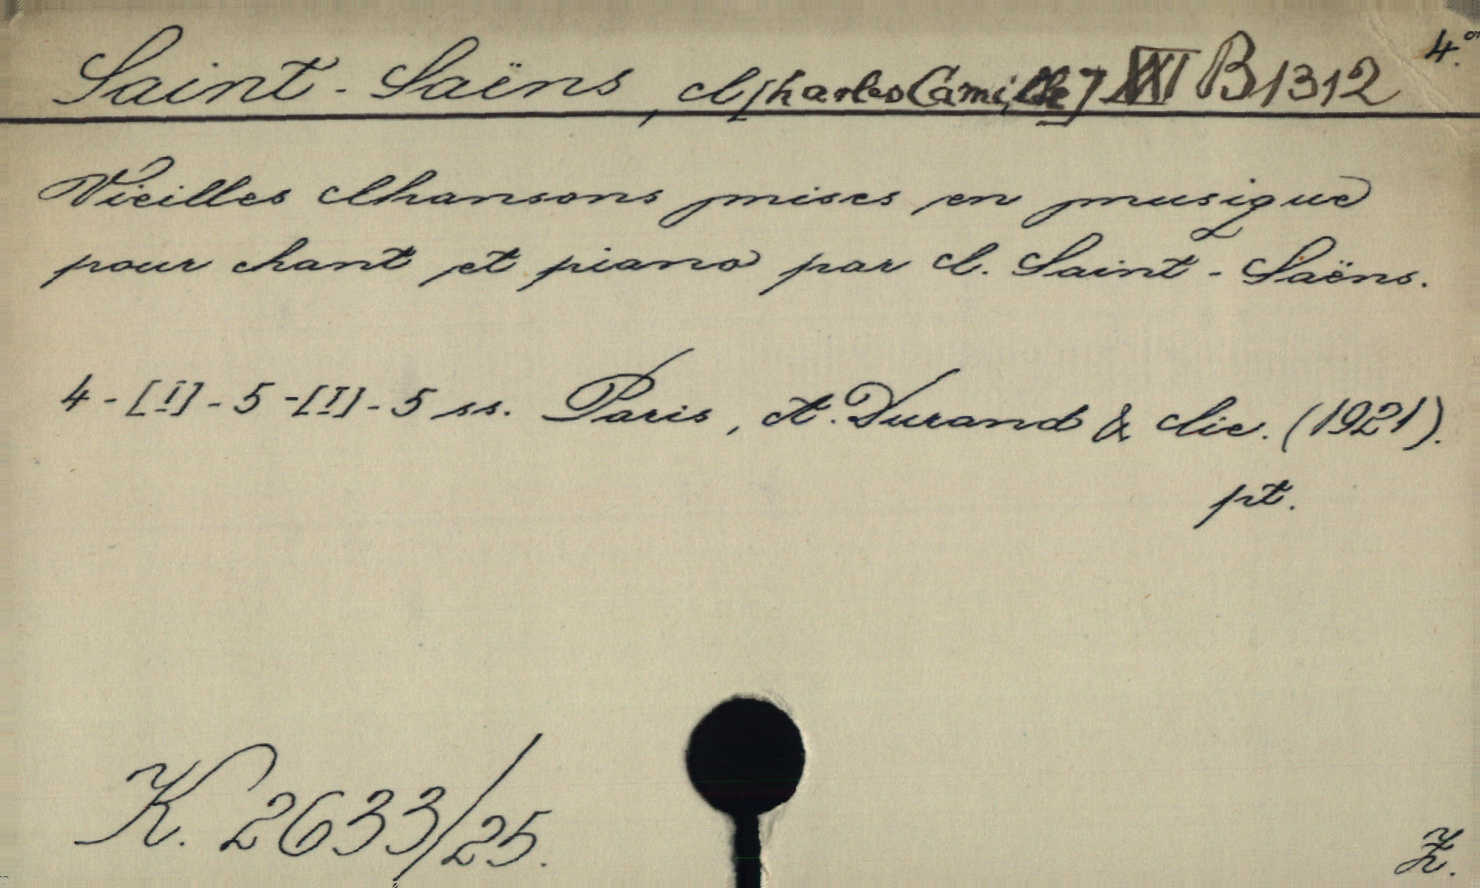 Saint-Saëns, C[harles Camille] XXI B 1312 4.°
Vieilles Chansons mises en musique
pour chant et piano par C. Saint-Saëns.
4-[I]-5-[I]-5 ss. Paris, A. Durand & Cie. (1921).
pt.
K. 2633/25.
Z.